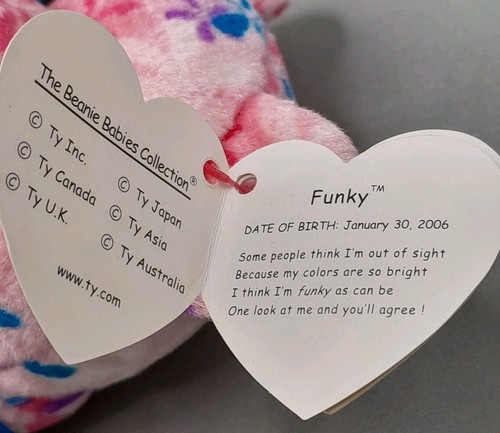 The Beanie Babies Collection®
© Ty Inc.
© Ty Canada
© Ty U.K.
© Ty Japan
© Ty Asia
© Ty Australia
www.ty.com
Funky™
DATE OF BIRTH: January 30, 2006
Some people think I'm out of sight
Because my colors are so bright
I think I'm funky as can be
One look at me and you'll agree !